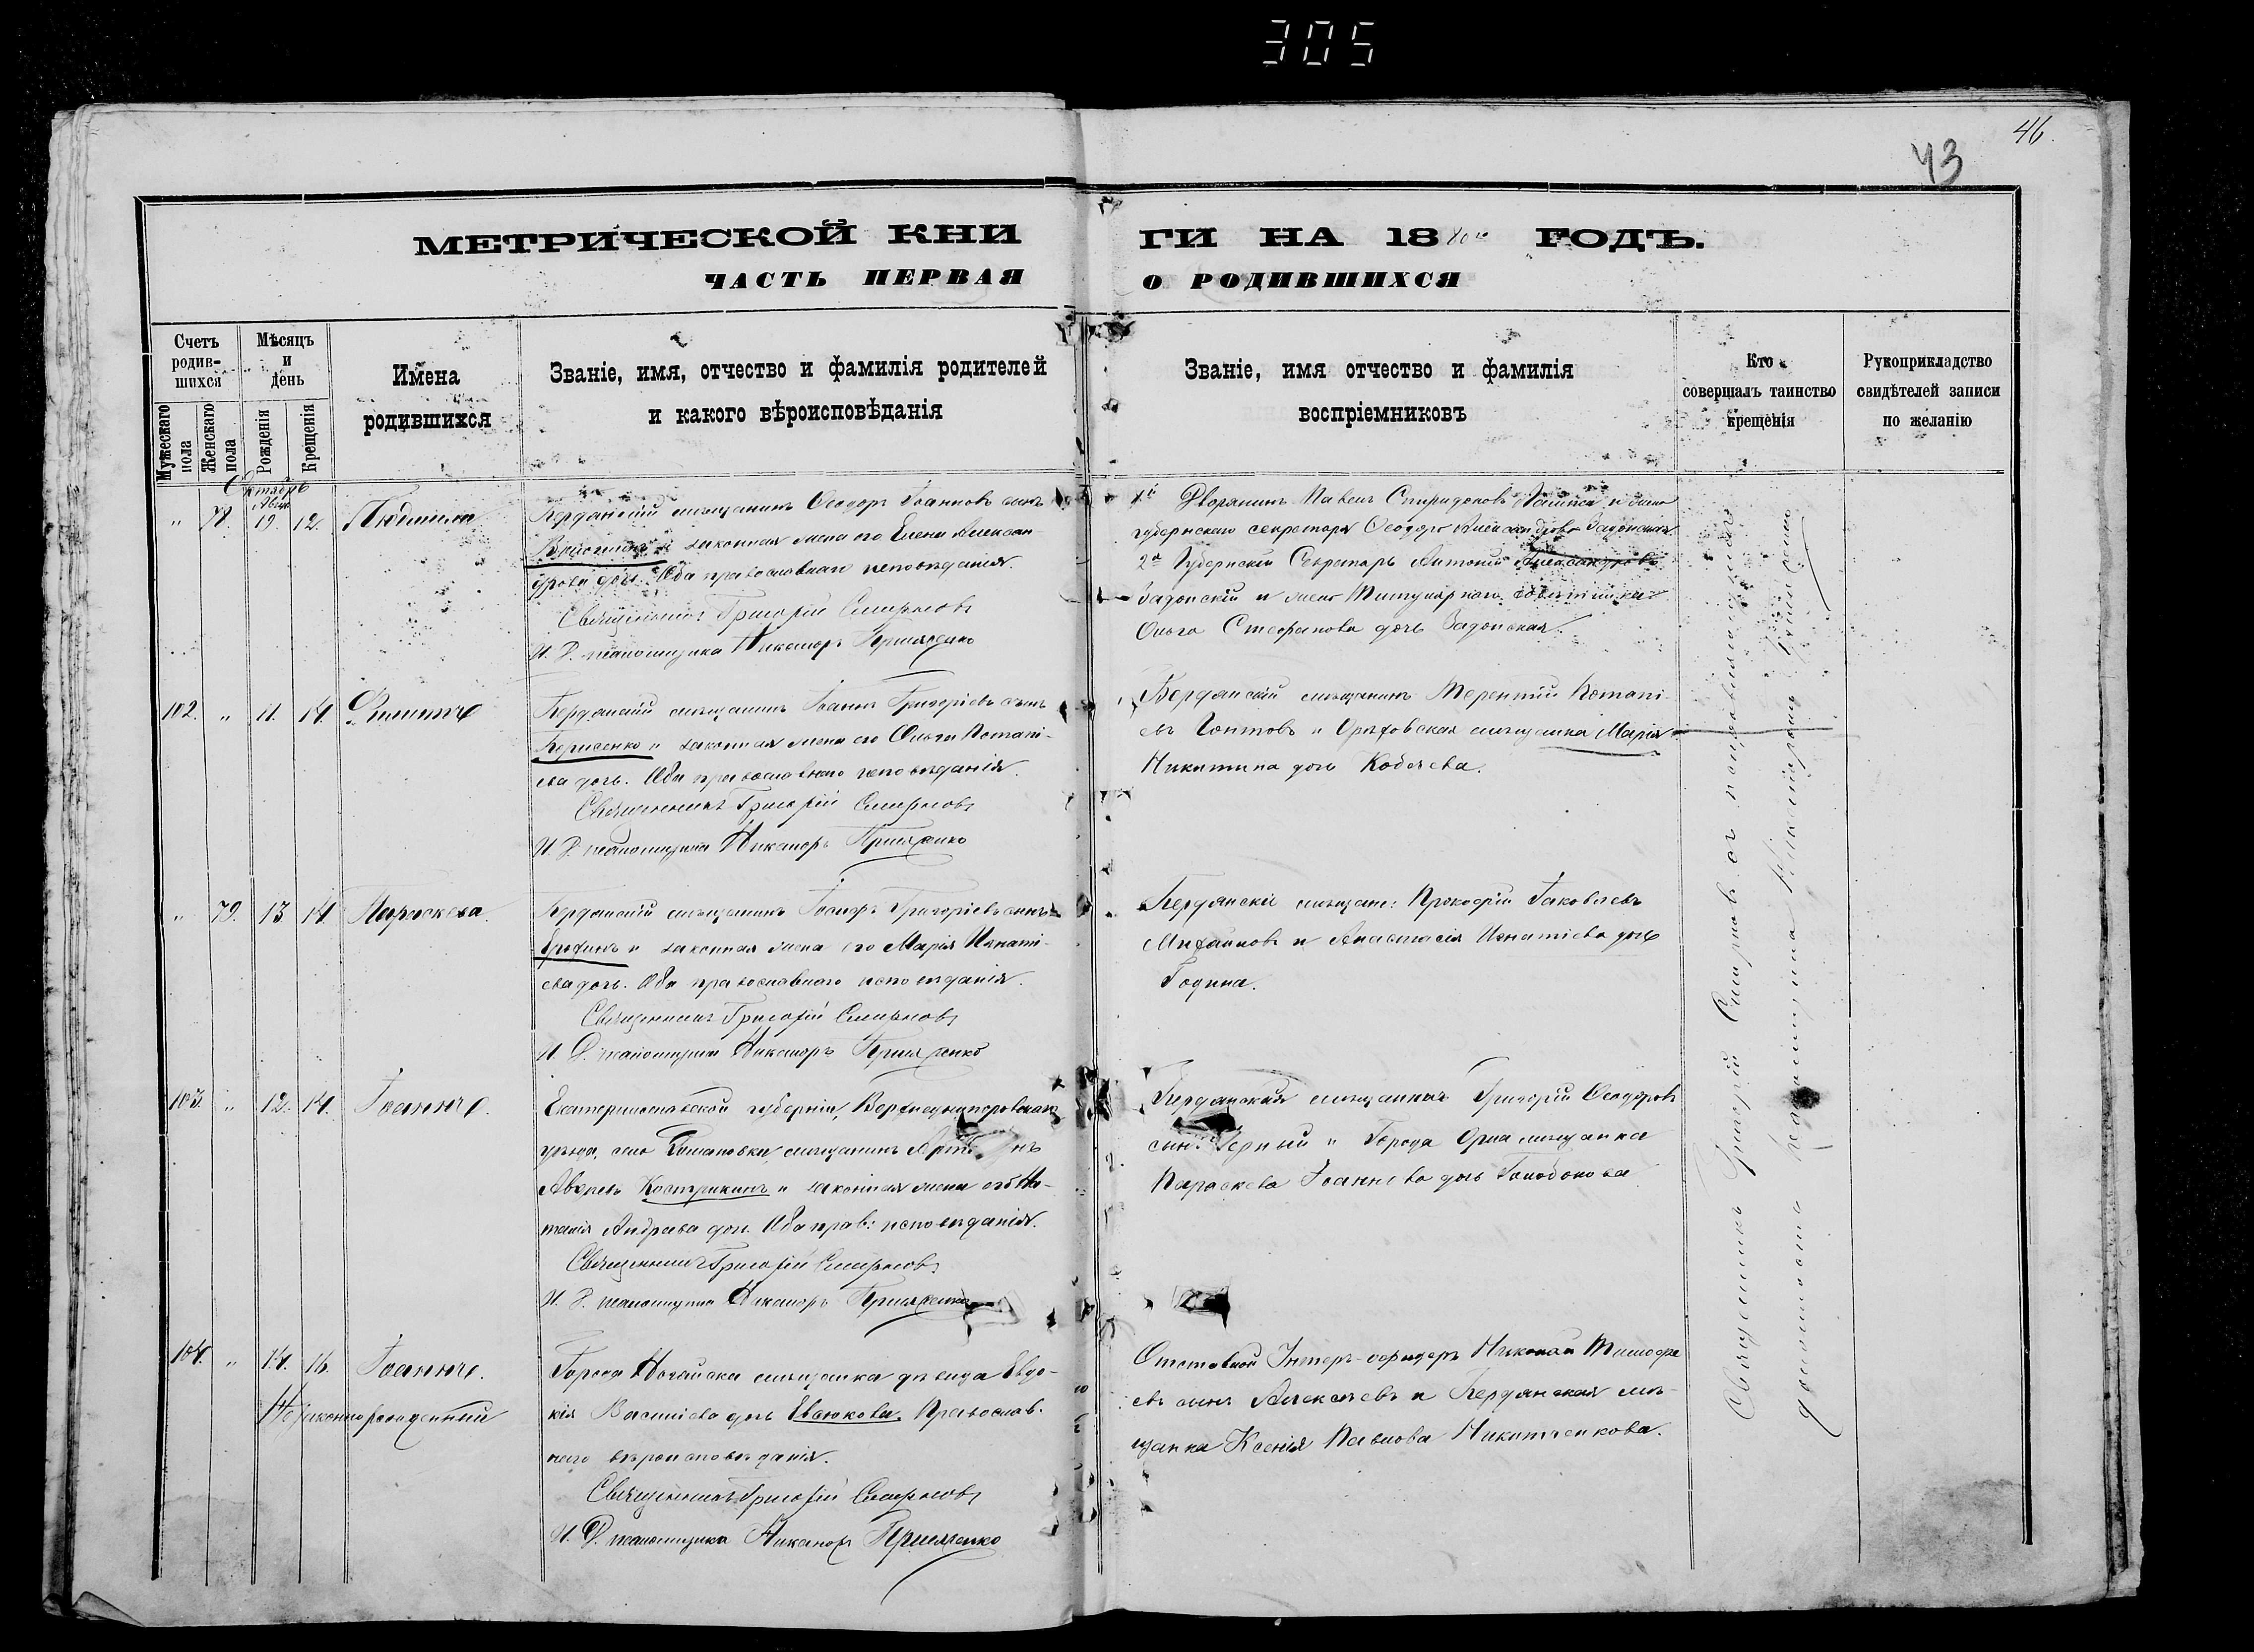 305
46.
43
МЕТРИЧЕСКОЙ КНИ
ГИ НА 1880го ГОДЪ.
ЧАСТЬ ПЕРВАЯ
О РОДИВШИХСЯ
Счетъ родив-шихся
Мужескаго пола
Женскаго пола
Мѣсяцъ и день
Рожденія
Крещенія
Имена
родившихся
Званіе, имя, отчество и фамилія родителей
и какого вѣроисповѣданія
Званіе, имя отчество и фамилія
воспріемниковъ
Кто
совершалъ таинство
крещенія
Рукоприкладство
свидѣтелей записи
по желанію
Октябрь
" 78. Авгус. 19. 12. Людмила
Бердянскій мѣщанинъ Ѳеодоръ Іоанновъ сынъ
и законная жена его Елена Алексан-
дрова дочь. Оба православнаго исповѣданія.
Священникъ Григорій Смирновъ
И. Д. псаломщика Никаноръ Прийменко
1й Дворянинъ Павелъ Спиридоновъ и жена
губернскаго секретаря Александрова Задонская
2я Губернскій Секретарь Антоній Александровъ
Задонскій и жена Титулярнаго совѣтника
Ольга Стефанова дочь Задонская.
102. " 11. 14. Филиппъ
Бердянскій мѣщанинъ Іоаннъ Григорієвъ сынъ
Борисенко и законная жена его Ольга Потапі-
ева дочь. Оба православнаго исповѣданія.
Священникъ Григорій Смирновъ
И. Д. псаломщика Никаноръ Прийменко
Бердянскій мѣщанинъ Терентій Потапі-
евъ и Орѣховская мѣщанка Марія
Никитина дочь Кобзева.
" 79. 13 14 Параскева.
Бердянскій мѣщанинъ Іосифъ Григоріевъ сынъ
Ерохинъ и законная жена его Марія Игнаті-
ева дочь. Оба православнаго исповѣданія.
Священникъ Григорій Смирновъ
И. Д. псаломщика Никаноръ Прийменко
Бердянскіе мѣщане: Прокофій Іаковлевъ
Михайловъ и Анастасія Игнатіева дочь
Година.
103. " 12. 14. Іоаннъ.
Екатеринославской губерніи, Верхнеднѣпровскаго
уѣзда, село мѣщанинъ
Костринкинъ и законная жена его На-
талія Андреева доч. Оба прав: исповѣданія.
Священникъ Григорій Смирновъ
И. Д. псаломщика Никаноръ Прийменко
мѣщанинъ Григорій Ѳеодоровъ
сынъ и Города мѣщанка
Параскева Іоаннова дочь
104. " 14. 16. Іоаннъ.
Незаконнорожденный
Города Ногайска мѣщанка дѣвица Евдо-
кія Василіева дочь Евсюкова. Православ-
наго вѣроисповѣданія.
Священникъ Григорій Смирновъ
И. Д. псаломщика Никаноръ Прийменко
Отставной Унтеръ-офицеръ Николай Тимофе-
евъ сынъ Алексѣевъ и Бердянская мѣ-
щанка Ксенія Павлова Никитченкова.
Священникъ Григорій Смирновъ съ исправляющимъ
должность псаломщика Никаноромъ